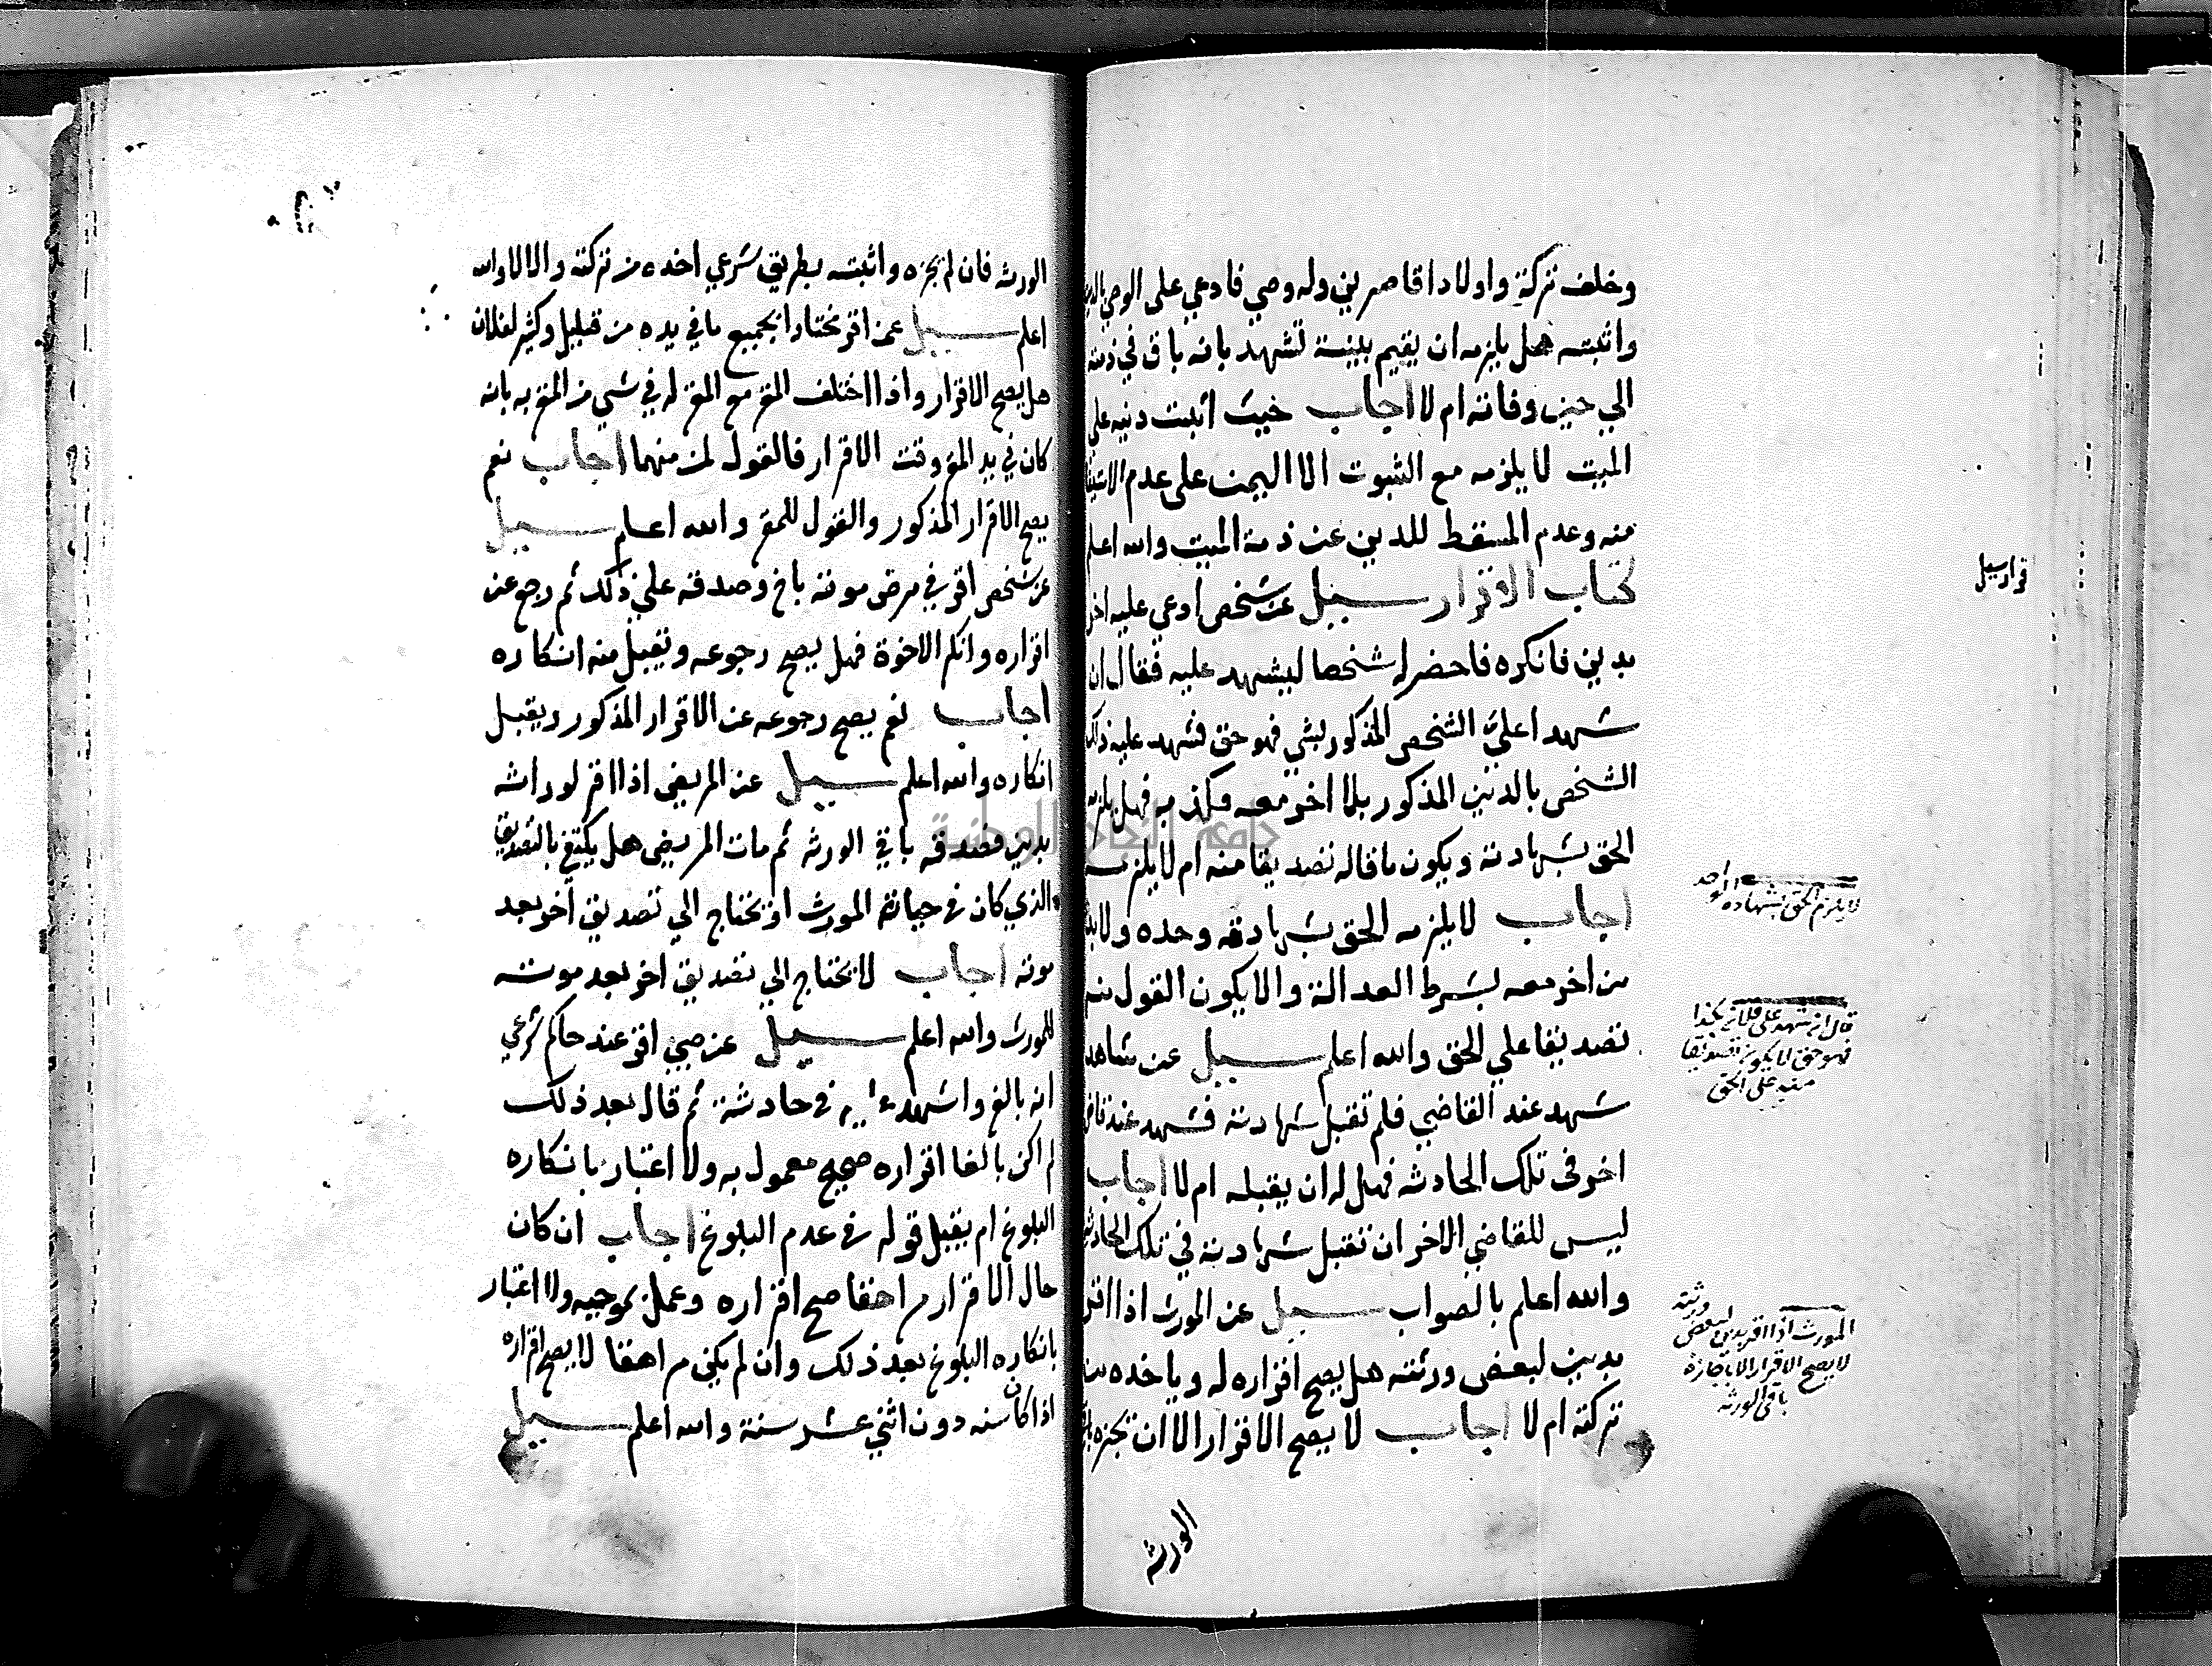 وخلف تركة واولادا قاصرين وله وصي فادعي على الوصي بالدين
واثبته هل يلزمه ان يقيم بينة تشهد بانه باق في ذمته
الي حين وفاته ام لا اجاب حيث اثبت دينه علي
الميت لا يلزمه مع الثبوت الا اليمين على عدم الاستيفا
منه وعدم المسقط للدين عن ذمة الميت والله اعلم
كتاب الاقرار سيل عن شخص ادعي عليه اخر
بدين فانكره فاحضر له شخصا ليشهد عليه فقال ان
شهد اعليّ الشخص المذكور بشي فهو حق فشهد عليه ذلك
الشخص بالدين المذكور بلا اخر معه وكذبه فهل يلزمه
الحق بشهادته ويكون ما قاله تصديقا منه ام لا يلزمه
اجاب لا يلزمه الحق بشهادته وحده ولا بد
من اخر معه بشرط العدالة والا يكون القول منه
تصديقا علي الحق والله اعلم سيل عن شاهد
شهد عند القاضي فلم تقبل شهادته فشهد عند قاض
اخر في تلك الحادثه فهل له ان يقبله ام لا اجاب
ليس للقاضي الاخر ان تقبل شهادته في تلك الحادثه
والله اعلم بالصواب سيل عن المورث اذا اقر
بدين لبعض ورثته هل يصح اقراره له وياخذه من
تركته ام لا اجاب لا يصح الاقرار الا ان تجزه باقي
الورثه
لا يلزم الحق بشهادة الواحد
قال ان شهد على فلان بكذا
فهو حق لا يكون تصديقا
منه على الحق
المورث اذا اقر بدين لبعض ورثته
لا يصح الاقرار الا باجازة
باقي الورثه
قرار سيل
الورثه فان لم تجزه واثبته بطريق شرعي اخده من تركته والا لا والله
اعلم سيل عمن اقر مختارا بجميع ما في يده من قليل وكثير لفلان
هل يصح الاقرار واذا اختلف المقر مع المقر له في شي من المقر به بانه
كان في يد المقر وقت الاقرار فالقول لمن منهما اجاب نعم
يصح الاقرار المذكور والقول للمقر والله اعلم سيل
عن شخص اقر في مرض موته باخ وصدقه علي ذلك ثم رجع عن
اقراره وانكر الاخوة فهل يصح رجوعه وتقبل منه انكاره
اجاب نعم يصح رجوعه عن الاقرار المذكور ويقبل
انكاره والله اعلم سيل عن المريض اذا اقر لوراثه
بدين فصدقه باقي الورثه ثم مات المريض هل يكتفي بالتصديق
الذي كان في حياة المورث او يحتاج الي تصديق اخر بعد
موته اجاب لا يحتاج الي تصديق اخر بعد موته
للمورث والله اعلم سيل عن صبي اقر عند حاكم شرعي
انه بالغ واشهد عليه في حادثة ثم قال بعد ذلك
لم اكن بالغا اقراره صحيح معمول به ولا اعتبار بانكاره
البلوغ ام يقبل قوله في عدم البلوغ اجاب ان كان
حال الاقرار مراهقا صح اقراره وعمل بموجبه ولا اعتبار
بانكاره البلوغ بعد ذلك وان لم يكن مراهقا لا يصح اقراره
اذا كان سنه دون اثني عشر سنة والله اعلم سيل
جامعة النجاح الوطنية